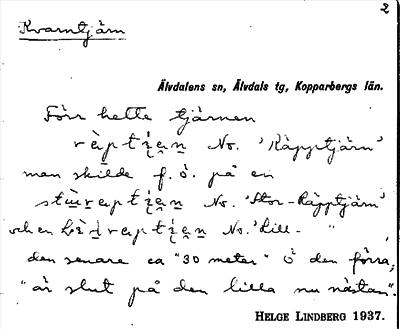 2
Kvarntjärn
Älvdalens sn, Älvdals tg, Kopparbergs län.
Förr hette tjärnen
No. 'Käpptjärn'
man skilde f. ö. på en
No. 'Stor-Käpptjärn'
och en No. 'Lill- "
den senare ca "30 meter" Ö den förra;
"är slut på den lilla nu nästan".
HELGE LINDBERG 1937.